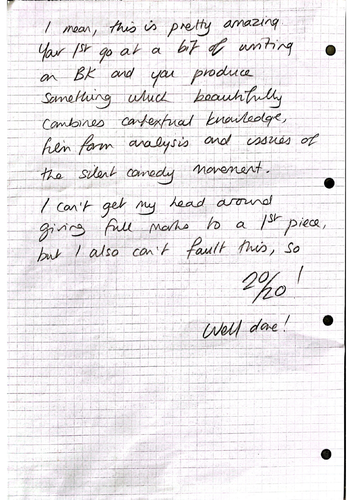 I mean, this is pretty amazing.
Your 1st go at a bit of writing
on BK and you produce
something which beautifully
combines contextual knowledge,
film form analysis and issues of
the silent comedy movement.
I can't get my head around
giving full marks to a 1st piece,
but I also can't fault this, so
20/20!
Well done!